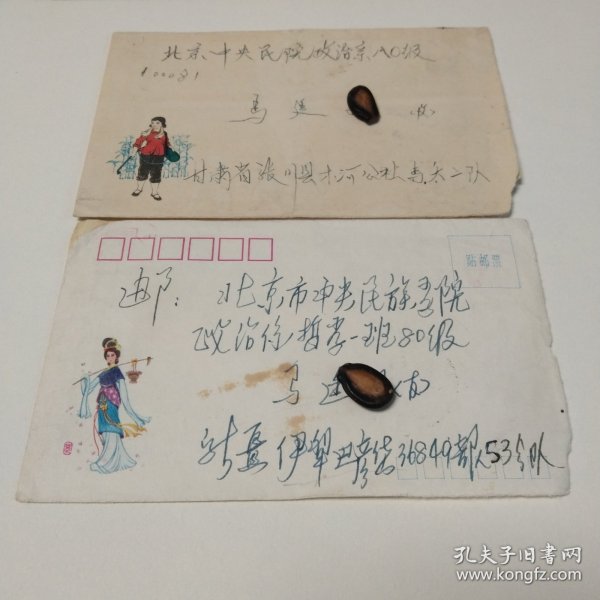 北京中央民院政治系80级
100081
马廷 收
甘肃省張川县木河公社高禾二队
贴邮票
邮: 北京市中央民族学院
政治系哲学一班80级
马廷 收
新疆伊犁巴彦岱36849部队53分队
孔夫子旧书网
www.kongfz.com